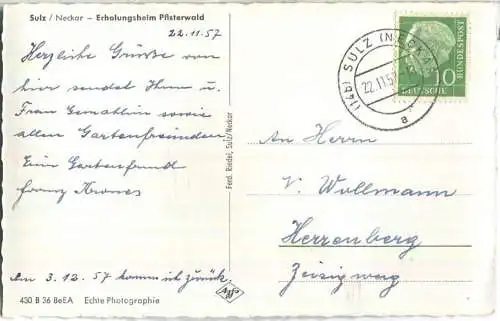 Sulz / Neckar – Erholungsheim Pfisterwald
22.11.57
Herzliche Grüsse von
hier sendet Ihnen u.
Frau Gemahlin sowie
allen Gartenfreunden
Ein Gartenfreund
Franz Krones
Am 3.12.57 komm ich zurück
430 B 36 BeEA Echte Photographie
Ferd. Riedel, Sulz/Neckar
(14b) SULZ (NECKAR)
22.11.57
a
10
DEUTSCHE
BUNDESPOST
An Herrn
V. Wollmann
Herrenberg
Zeisigweg